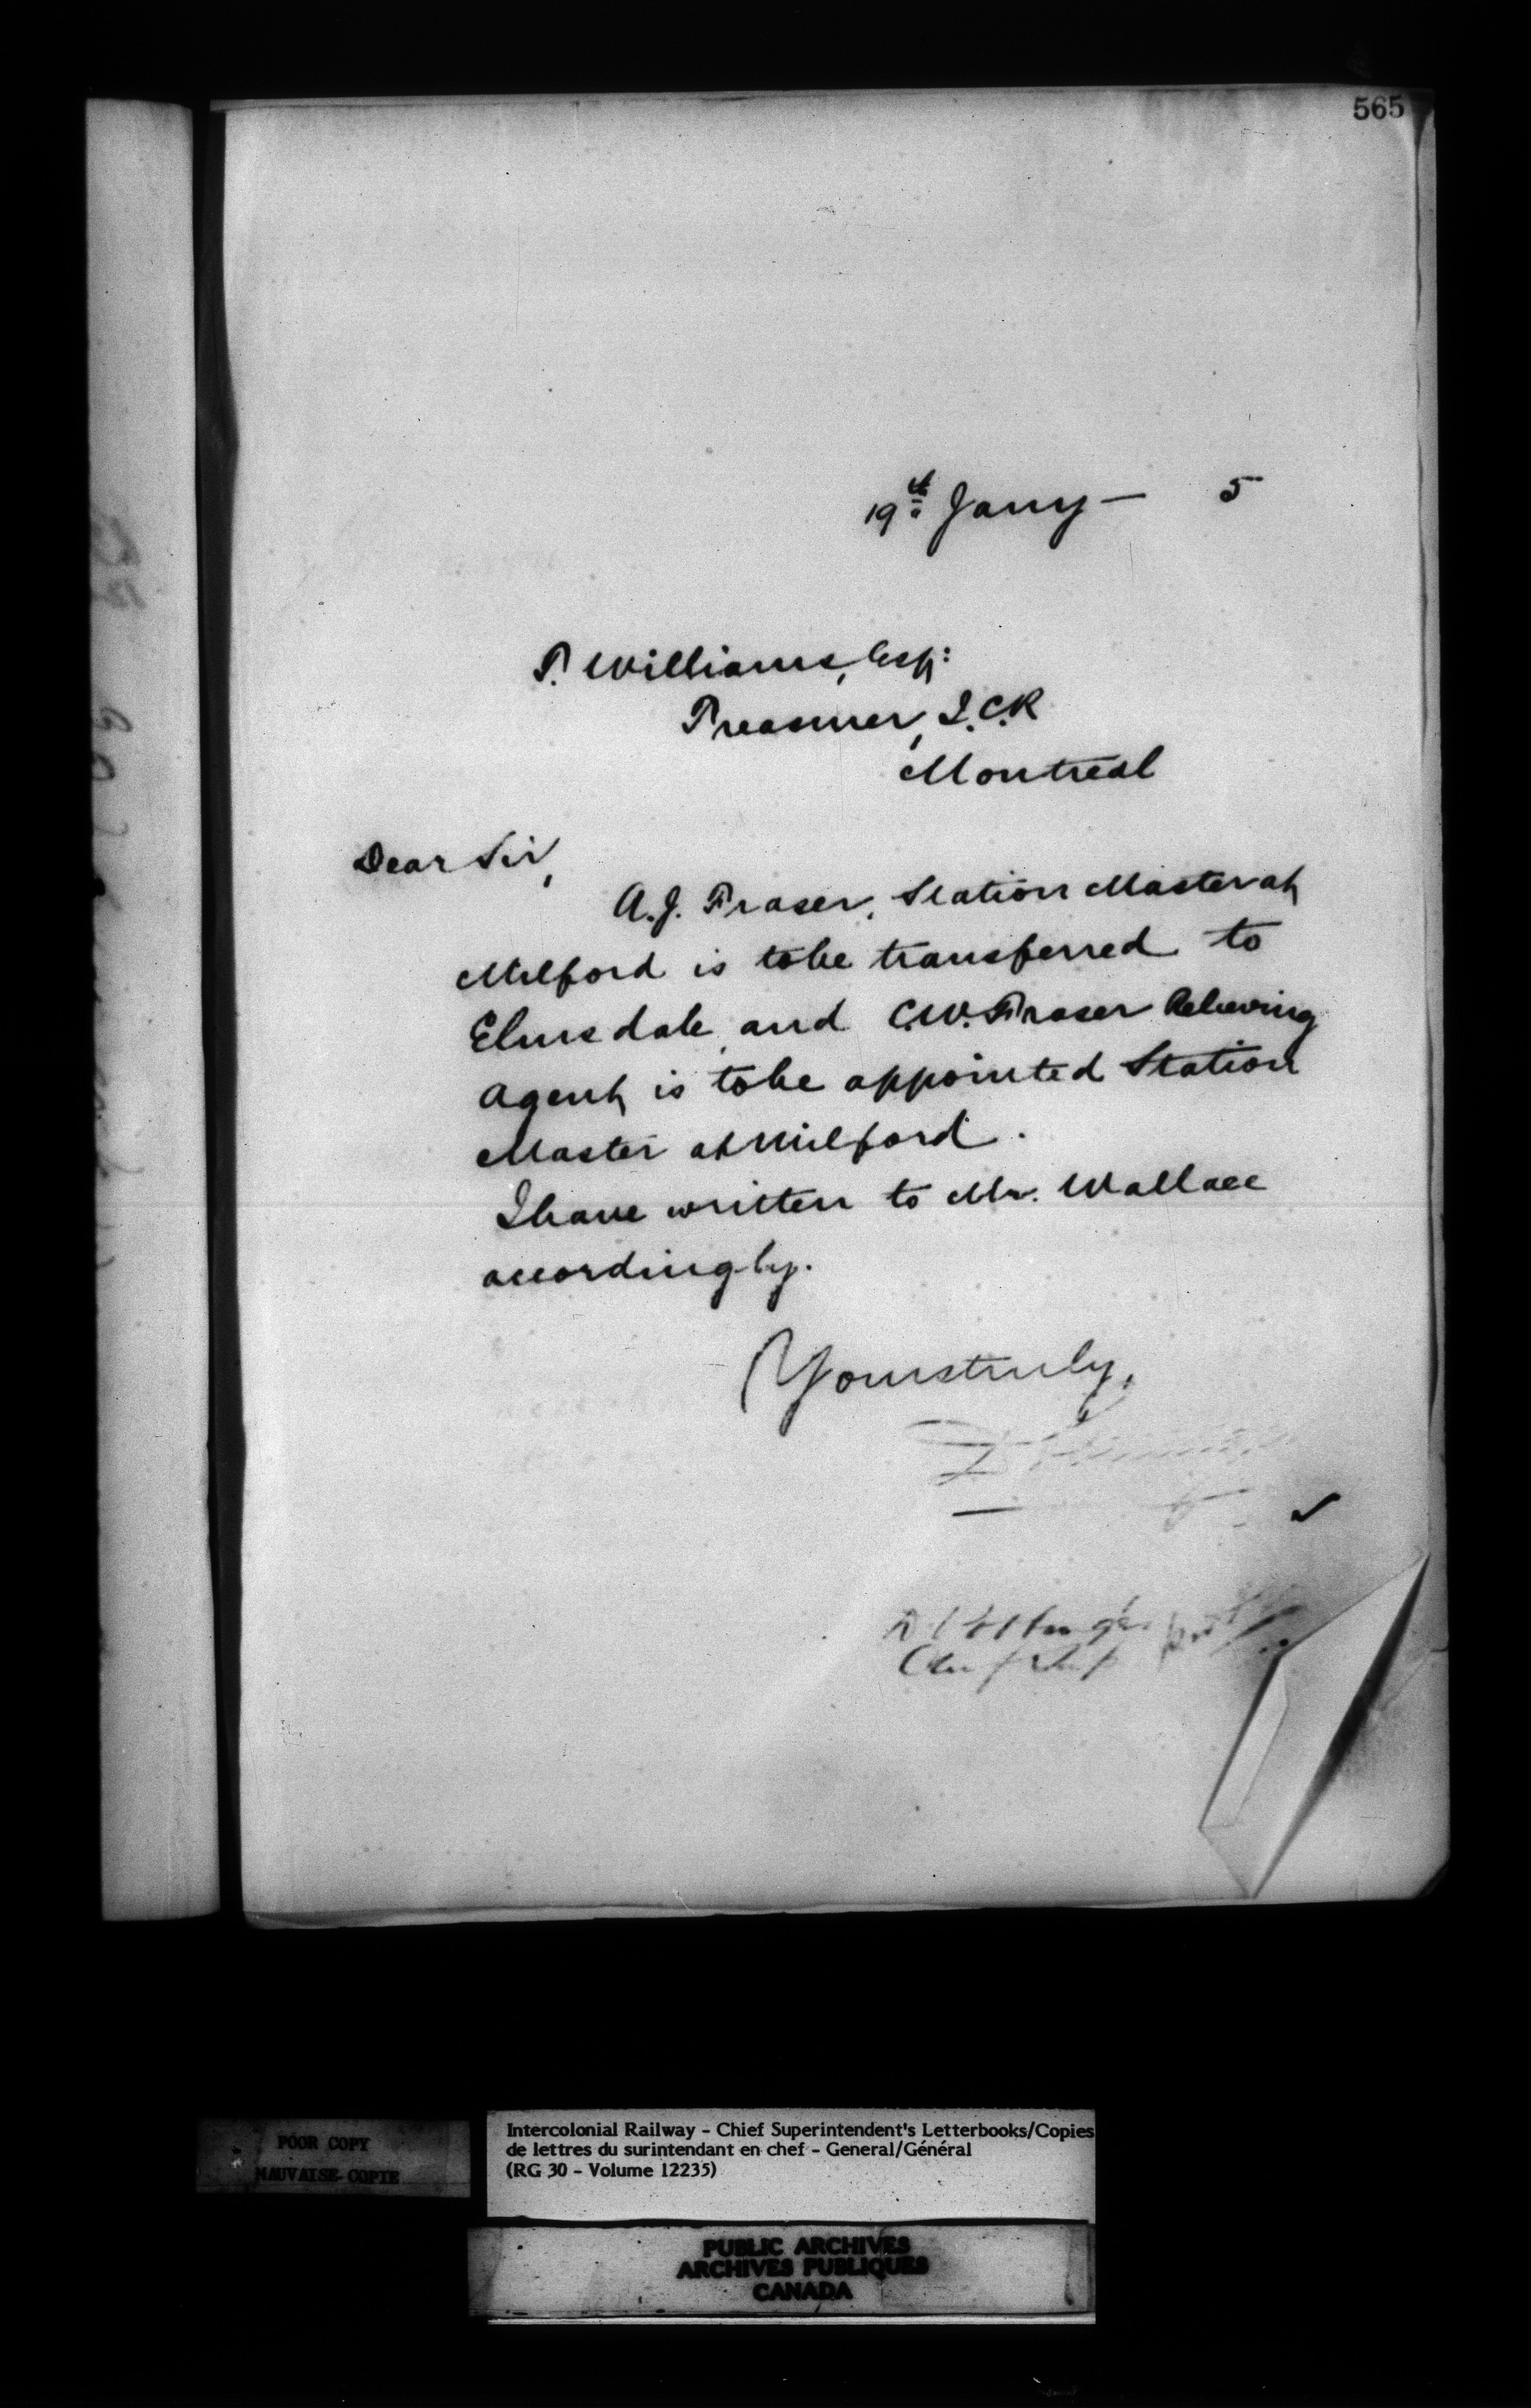 565
19th Jany — 5
T. Williams, Esq:
Treasurer, I.C.R
Montreal
Dear Sir,
A.J. Fraser, Station Master at
Milford is to be transferred to
Elmsdale, and C.W. Fraser Relieving
Agent is to be appointed Station
Master at Milford.
I have written to Mr. Wallace
accordingly.
Yours truly,
POOR COPY
MAUVAISE COPIE
Intercolonial Railway - Chief Superintendent's Letterbooks/Copies
de lettres du surintendant en chef - General/Général
(RG 30 - Volume 12235)
PUBLIC ARCHIVES
ARCHIVES PUBLIQUES
CANADA